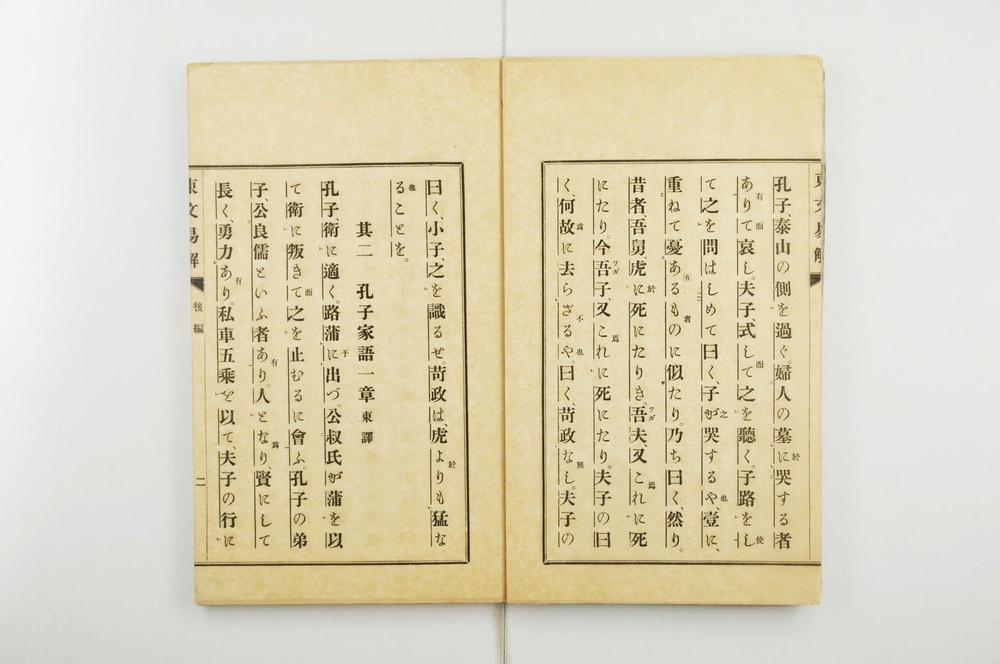 孔子、泰山の側を過ぐ。婦人の墓に哭する者
ありて哀し。夫子、式して之を聽く。子路をし
て之を問はしめて曰く、子が哭するや、壹に、
重ねて憂あるものに似たり。乃ち曰く、然り。
昔者、吾舅、虎に死にたりき。吾夫、又これに死
にたり。今吾子又これに死にたり。夫子の曰
く、何故に去らざるや。曰く、苛政なし。夫子の
曰く、小子、之を識るせ。苛政は、虎よりも猛な
ることを。
其二 孔子家語一章 東譯
孔子、衛に適く。路蒲に出づ。公叔氏が蒲を以
て衛に叛きて之を止むるに會ふ。孔子の弟
子、公良儒といふ者あり。人となり、賢にして
長く、勇力あり。私車五乘を以て、夫子の行に
東文易解 後編 二